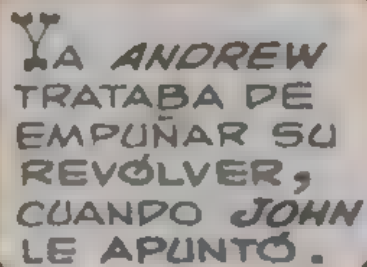 YA ANDREW
TRATABA DE
EMPUÑAR SU
REVÓLVER,
CUANDO JOHN
LE APUNTÓ.